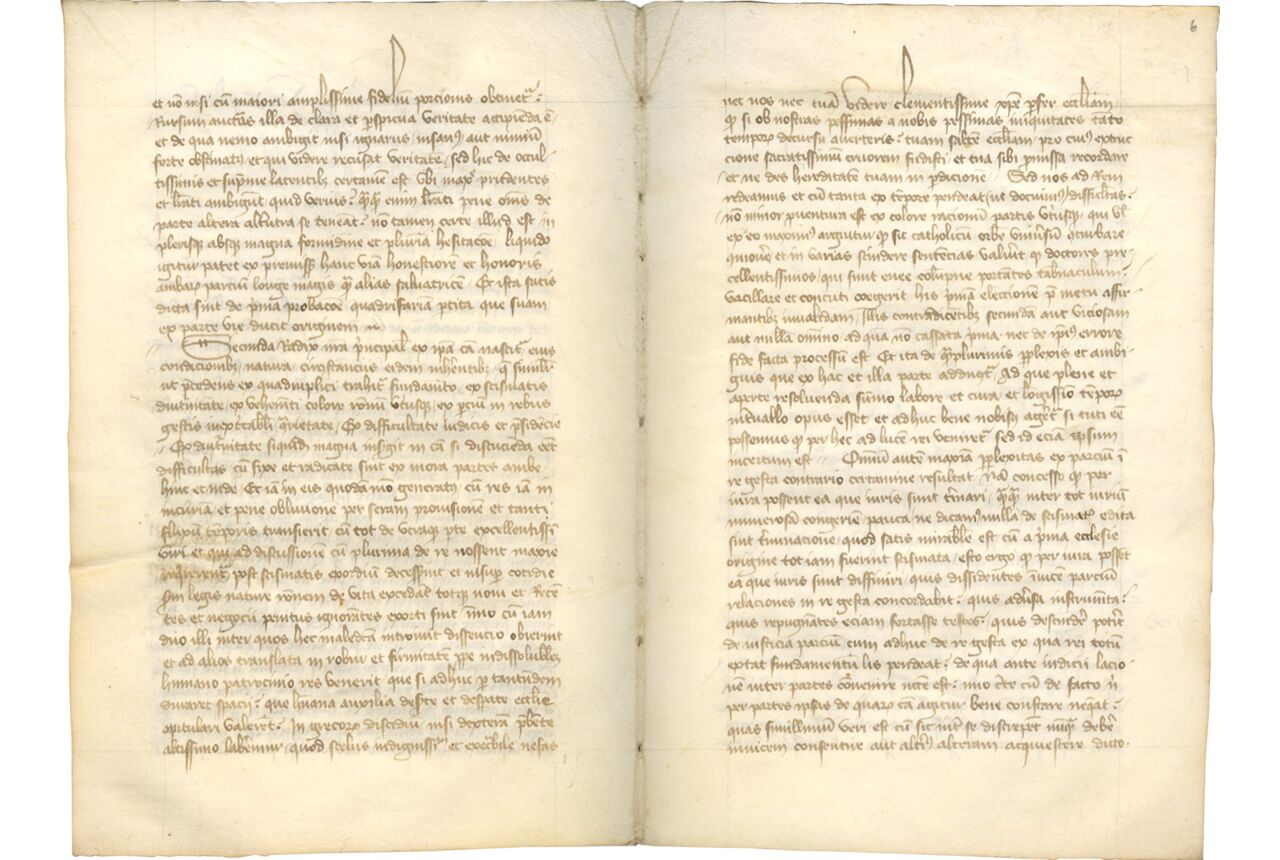 et nō nisi cū maiori amplissime fideliū porcionis obtinetᷣ :
Rursum auctīs illa de clara et ꝑspicua veritate accipienda ē
et de qua nemo ambigit nisi ignarus insanꝰ aut nimiū
forte obstinatꝰ et qui videre recusat veritatē / sed hic de occul
tissimis et sūp̄me latentibꝫ certamen est vbi maxī prudentes
et lr̄ati ambigūt quid verius ? q̄ꝗ̄ enim lr̄ati pene om̄s de
parte altera alt̓utra se teneāt : nō tamen certe illud est in
plerisqꝫ absqꝫ magna formidine et plurīa hesitacōe / liquido
igitur patet ex premissꝭ hanc viā honestiorem et honoris
ambarꝫ parciū longe magis q̄ alias saluatricē / Et ista satis
dicta sint de pͥma ꝓbacōe quadrifariā ꝑtita que suam
ex parte vie ducit originem
Secunda Radix nr̄a pͥncipal̓ ex ip̄a cā nascitᷣ eius
condicionibꝫ natura circūstanciis eidem inhēntibꝫ / q̄ simil̓r
ut p̄cedens ex quadruplici trahitᷣ fundamēto / ex scismatis
diuturnitate / ex vehemēti colore rōnū vtriusqꝫ / ex parciū in rebus
gestis inextᷓcabili q̄rietate / Ex difficultate iudicis et p̄sidēcie
Ex diut̓nitate siquid̄ magna insurgit in cā si discucienda eēt
difficultas cū fixe et radicate sint ex mora partes ambe
hinc et inde / Et iā in eis quodāmō generatꝰ / cū res iā in
incuriā et pene obliuione per seram prouisionē et tanti
fluxū tēporis transierit cū tot de vtraqꝫ ꝑte excellentissī
viri et qui ad discussionē cū plurima de re nossent maxie
requirerentᷣ post scismatis exordiū decesserint et insuꝑ cotidie
scd̄m legis nature rōnem de vita excedāt totqꝫ noui et Recē
tes et negocii penitus ignorātes exorti sint / imo cū iam
duo illi inter quos hec maledicta introiuit dissencio obierint
et ad alios translata in robur et firmitatē ꝓpe indissolubilē
humano patrocinio res venerit que si adhuc ꝑ tantundem
duraret spacii : que hūana auxilia desūꝑ et desperate eccl̓ie
opitulari valerēt : In grecorꝫ discidiū / nisi dexterā p̄bēte
altissimo labimur / quod scelus indignissīꝫ et execrabile nefas
6
nec nos nec tuā videre clementissime xp̄e ꝑfer eccliam
qͦ si ob nostras pessimas a nobis pessimas iniquitates tāto
temporꝫ decursu auerteris : tuam saltē eccl̓iam / pro cuiꝰ extruc
cione sacratissimū cruorem fudisti / et tua sibi ꝓmissa recordare
et ne des hereditatē tuam in ꝑdicione / Sed nos ad Rem
redeamus et cū tanta ex tēpore pendeat (ut docuimꝰ) difficultas :
nō minor puentura est ex colore racionū partis vtriusqꝫ / qui vl̓
ex eo maximꝰ arguitur qͦ sic catholicū orbē vniuersū ꝯturbare
quiuerit et in varias scindere sentēcias valuerit qͦ doctores pre
cellentissimos / qui sint enee colūpne portātes tab̓naculum :
vacillare et concuti coegerit / his pͥmā eleccionē p̄ metu affir
mantibꝫ inualidam / Illis contradicētibꝫ secunda aut viciosam
aut nullā omnino ad quā nō cassata pͥma / nec de ip̄iꝰ errore
fide facta processū est / Et ita de q̄mplurimis ꝑplexis et ambi
guis que ex hac et illa parte adducūtᷣ / Ad que plene et
aperte resoluenda sūmo labore et cura et longissīo tēporꝫ
intuallo opus esset et adhuc bene nobiscū ageretᷣ si tuti eē
possemus qͦ per hec ad lucē rei veniretᷣ / sed id eciā ipsum
incertum est / Omniū autē maxīa ꝑplexitas ex parciū ī
re gesta contrario certamine resultat / Nā concesso qͦ per
iura possent ea que iuris sint tͥminari / q̄ꝗ̄ inter tot iuriū
numerosā congeriē / pauca / ne dicamꝰ nulla de scismatꝫ edita
sint tͥminacione / quod satis mirabile est cū a pͥma ecclesie
origine tot iam fuerint scismata / esto ergo qͦ per iura posset
ea que iuris sint diffiniri / quis dissidentes īuicē parciū
relaciones in re gesta concordabit : quis adu̓sa instrumēta :
quis repugnātes eciam fortasse testes : quis descendēr̄ pot̓it
de iusticia parciū cum adhuc de re gesta ex qua rei totū
extat fundamentū lis pendeat : de qua ante iudicii lacio
nē inter partes cōuenire nc̄ce est : imo cͥte cū de facto n̄
per partes ipsas de quarꝫ cā agitur bene constare neq̄at :
quas simillimū veri est cū sic int̓ se discrepēt nunꝗ̄ debēr̄
inuicem consentire aut alt̓iꝰ alteram acquiescere dicto